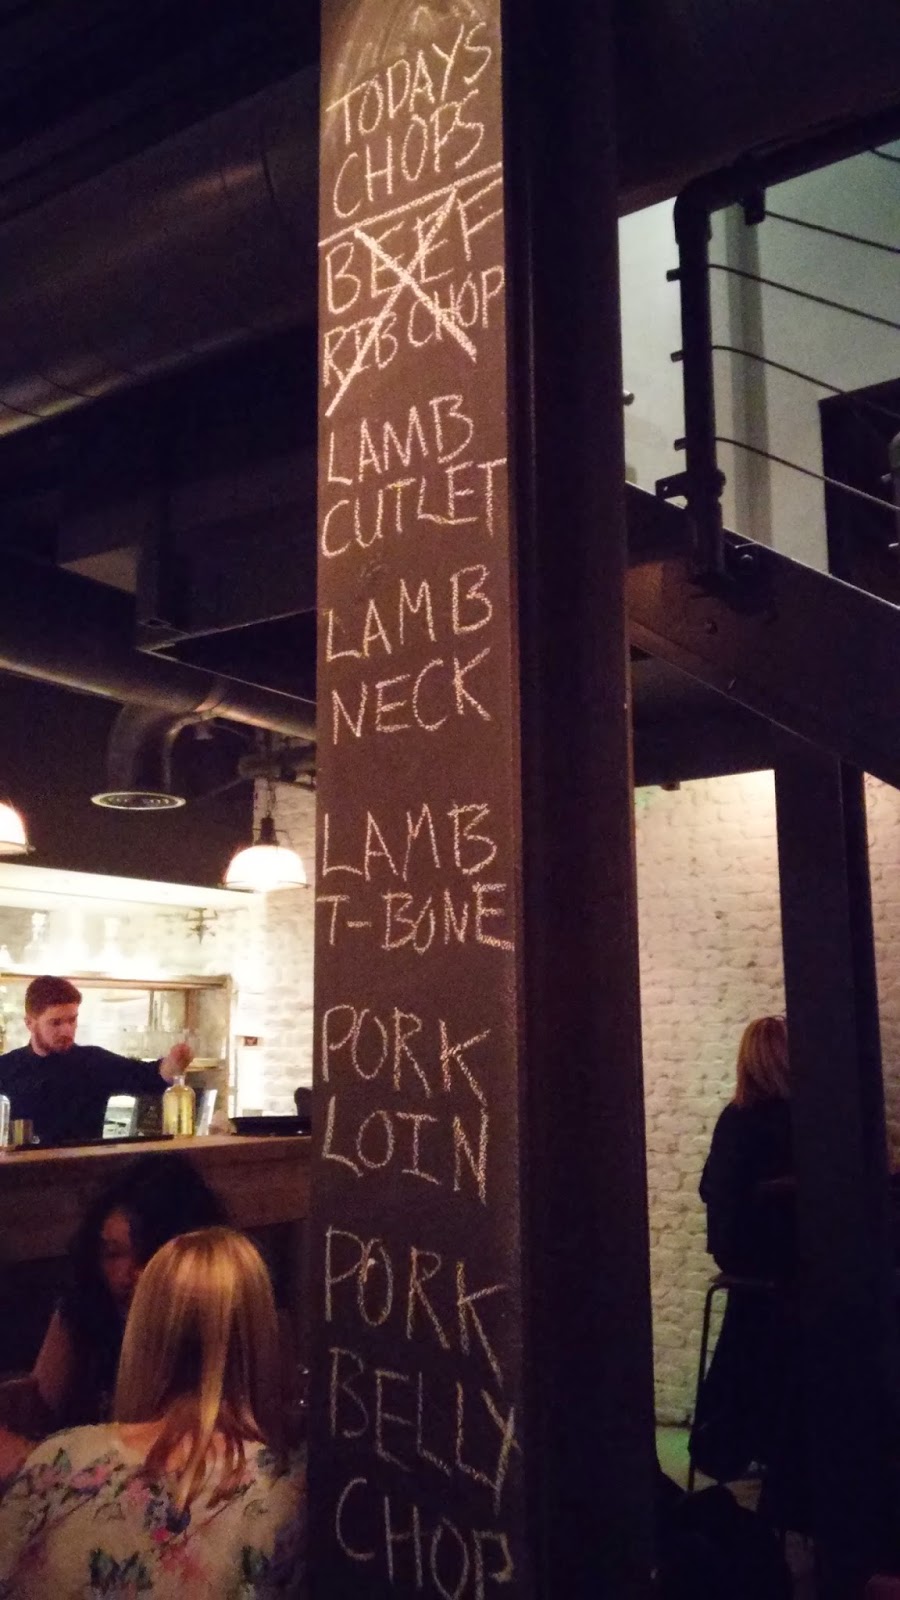 TODAYS
CHOPS
BEEF
RIB CHOP
LAMB
CUTLET
LAMB
NECK
LAMB
T-BONE
PORK
LOIN
PORK
BELLY
CHOP